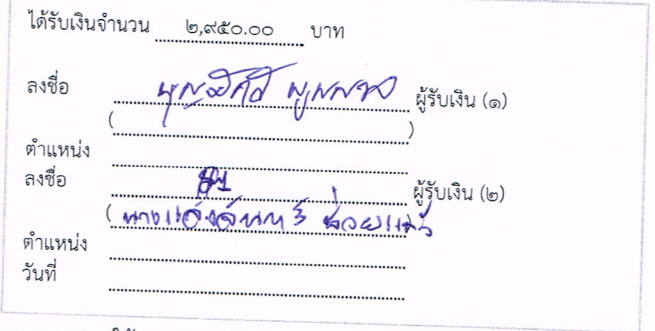 ได้รับเงินจำนวน ๒,๙๕๐.๐๐ บาท
ลงชื่อ ผู้รับเงิน (๑)
( )
ตำแหน่ง
ลงชื่อ ผู้รับเงิน (๒)
( นางแสงจันทร์ ช่วยแก้ว
ตำแหน่ง
วันที่